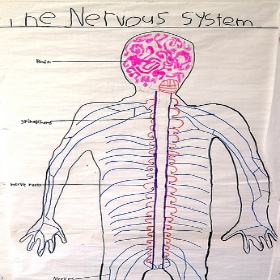 The Nervous System
Brain
spinal cord
nerve roots
Nerves